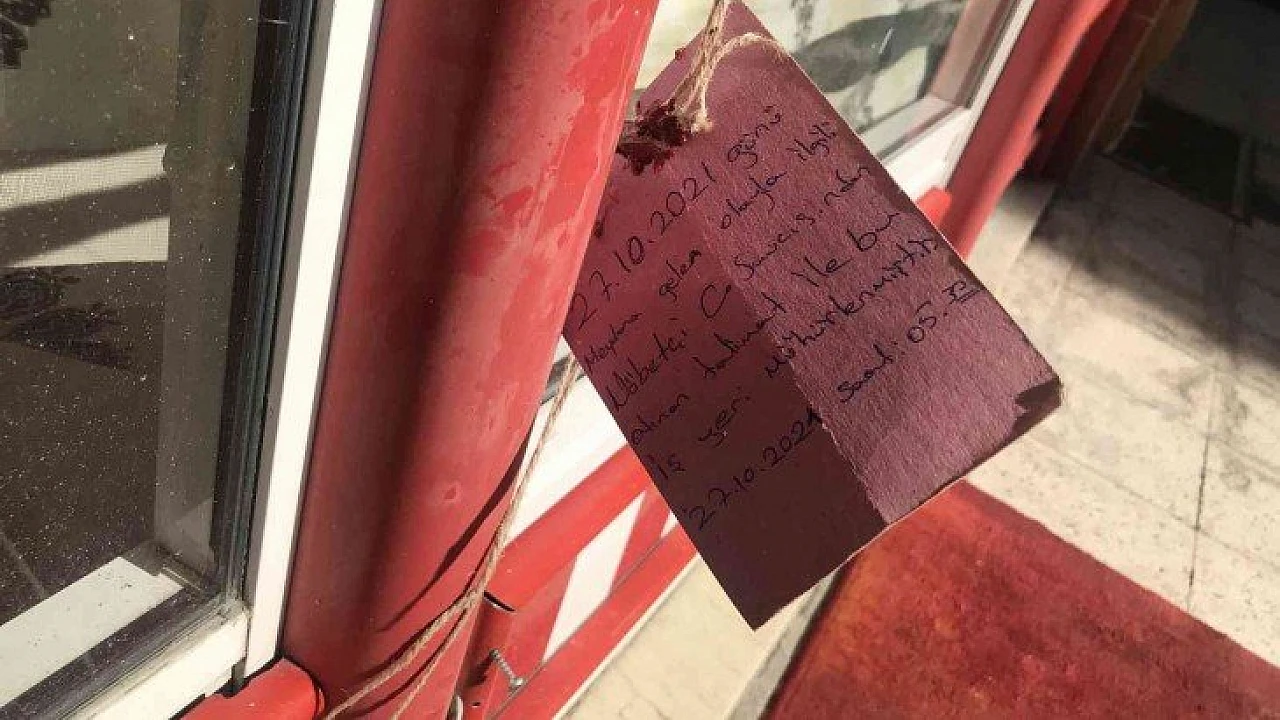 27.10.2021 günü
Meydana gelen olayla ilgili
Nöbetçi C. Savcısından
alınan talimat ile bu
İş yeri Mühürlenmiştir
27.10.2021 Saat: 05.30